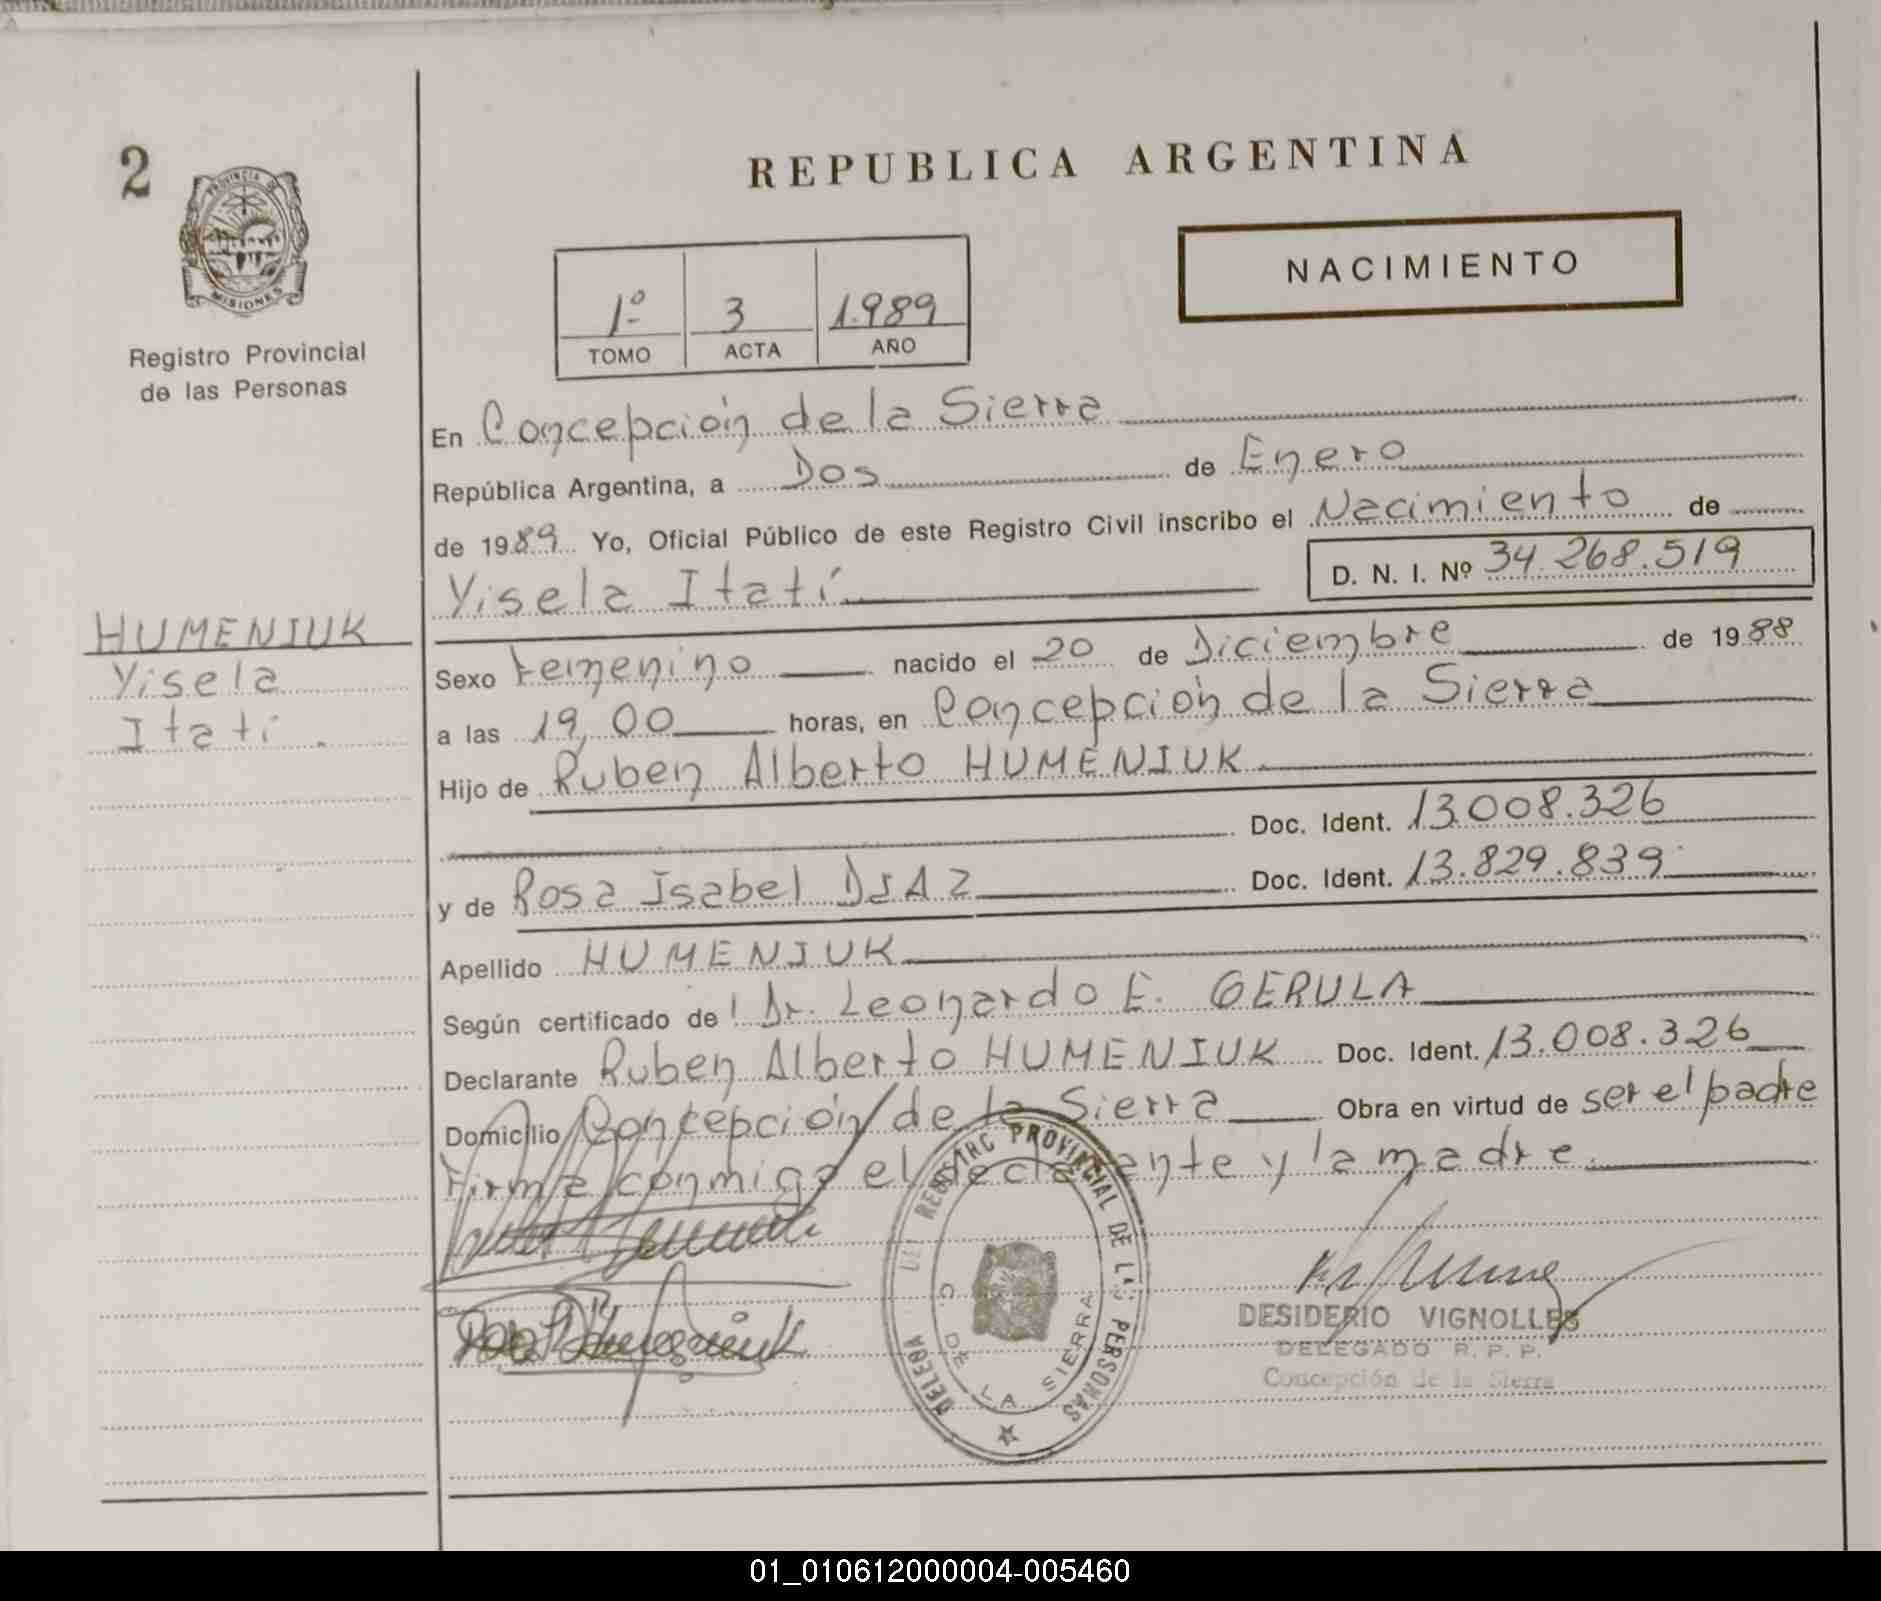 2
PROVINCIA DE
MISIONES
Registro Provincial
de las Personas
REPUBLICA ARGENTINA
NACIMIENTO
1º 3 1.989
TOMO ACTA AÑO
En Concepción de la Sierra
República Argentina, a Dos de Enero
de 1989 Yo, Oficial Público de este Registro Civil inscribo el Nacimiento de
Yisela Itatí D. N. I. Nº 34.268.519
HUMENIUK
Yisela
Itatí.
Sexo Femenino nacido el 20 de Diciembre de 1988
a las 19,00 horas, en Concepción de la Sierra
Hijo de Ruben Alberto HUMENIUK
Doc. Ident. 13.008.326
y de Rosa Isabel DIAZ Doc. Ident. 13.829.839
Apellido HUMENIUK
Según certificado del Dr. Leonardo E. GERULA
Declarante Ruben Alberto HUMENIUK Doc. Ident. 13.008.326
Domicilio Concepción de la Sierra Obra en virtud de ser el padre
Firma conmigo el declarante y la madre
REGISTRO PROVINCIAL DE LAS PERSONAS
C. DE LA SIERRA
DESIDERIO VIGNOLLES
DELEGADO R. P. P.
Concepción de la Sierra
01_010612000004-005460